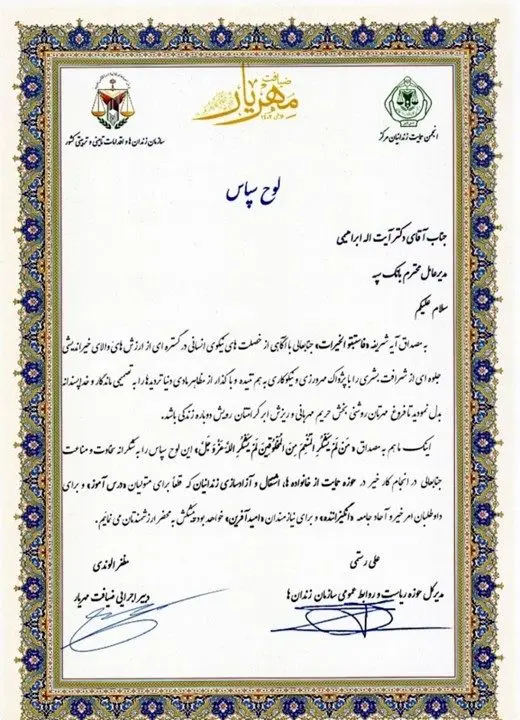 ضیافت
مهریار
انجمن حمایت زندانیان مرکز
سازمان زندان ها و اقدامات تامینی و تربیتی کشور
لوح سپاس
جناب آقای دکتر آیت اله ابراهیمی
مدیرعامل محترم بانک سپه
سلام علیکم
به مصداق آیه شریفه «فاستبقوا الخیرات» جنابعالی با آگاهی از خصلت های نیکوی انسانی در گستره ای از ارزش های والای خیراندیشی
جلوه ای از شرافت بشری را با پژواک مهرورزی و نیکوکاری به هم تنیده و با گذار از مظاهر مادی دنیا تردیدها را به تصمیمی ماندگار و خداپسندانه
بدل نمودید تا فروغ مهرتان روشنی بخش حریم مهربانی و ریزش ابر کرامتتان رویش دوباره زندگی باشد.
اینک ما هم به مصداق «مَن لَم یَشکُرِ المُنعِمَ مِنَ المَخلوقینَ لَم یَشکُرِ اللهَ عَزَّ وَ جَلَّ» این لوح سپاس را به شکرانه سخاوت و مناعت
جنابعالی در انجام کار خیر در حوزه حمایت از خانواده ها، اشتغال و آزادسازی زندانیان که قطعاً برای متولیان «درس آموز» و برای
داوطلبان امر خیر و آحاد جامعه «انگیزاننده» و برای نیازمندان «امیدآفرین» خواهد بود پیشکش به محضر ارزشمندتان می نمایم.
علی رستمی
مدیرکل حوزه ریاست و روابط عمومی سازمان زندان ها
مظفر الوندی
دبیر اجرایی ضیافت مهریار